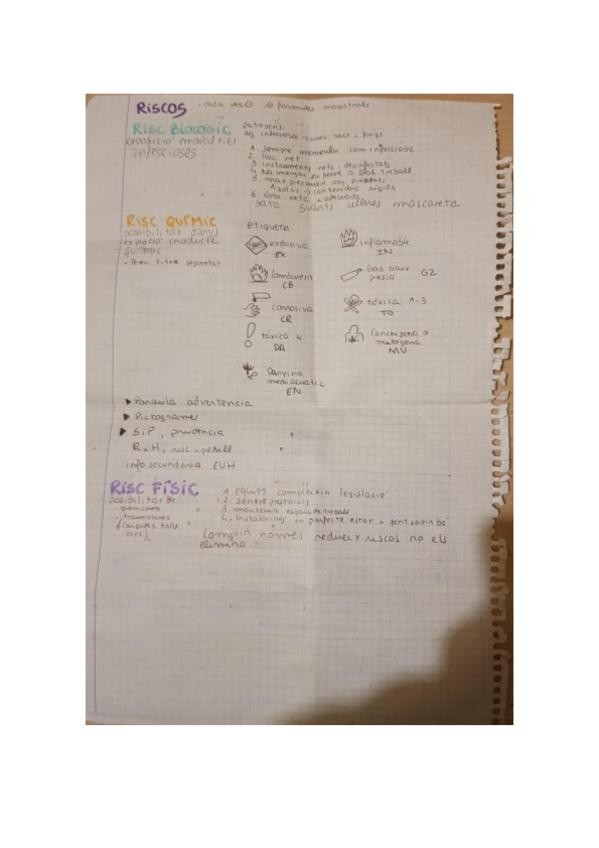 RISCOS · cada ves ⊖ ⊖ formules magistrals
RISC BIOLOGIC
exposició material
infeccioses
patogens:
ag infecciosos virus, bact. i fongs
1. sempre manipular com infecciosa
2. lloc net
3. instruments nets i desinfectats
4. No menjar, ni beure a lloc treball
5. max precaució obj
contenidors rígids
6. Roba neta i adequada
bata guants ulleres mascareta
RISC QUÍMIC
possibilitat danys
exposició producte
químic
seguretat
etiqueta
explosiva
EX
inflamable
IN
Comburent
CB
Gas baix
pesió G2
Corrosiva
CR
tòxica 1-3
TO
tòxica 4
DA
Cancerigena o
mutagena
MU
Danyina
medi acuatic
EN
▶ Paraula advertencia
▶ Pictogrames
▶ S i P, prudencia
R i H, risc i perill
info secundaria EUH
RISC FÍSIC
possibilitat de
- cremades
- traumatismes
(caigudes talls
cops)
1. equips compleixin legislació
2. sempre protocols
3. mantenir espais de treball
4. Instalacions en perfecte estat i
Complir normes redueix riscos no els
elimina